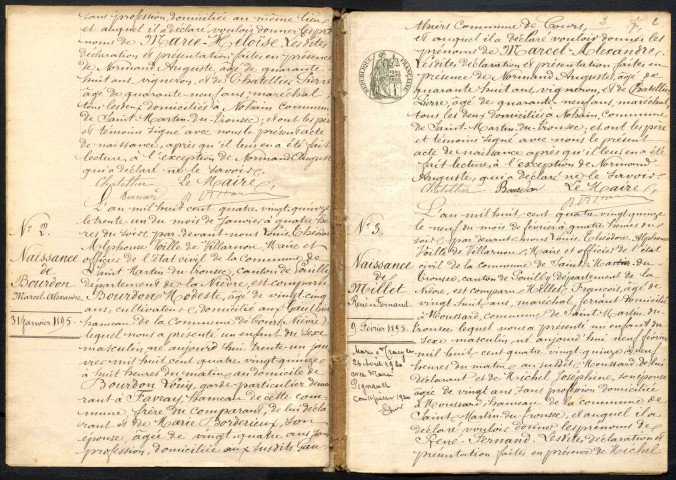 sans profession, domiciliée au même lieu
et auquel il a déclaré vouloir donner les pré
noms de Marie-Héloïse. Lesdites
déclaration et présentation faites en présence
de Normand Auguste, âgé de quarante
huit ans, vigneron, et de Chatellier Pierre
âgé de quarante neuf ans, maréchal
tous les deux domiciliés à Nohain, commune
de Saint-Martin-du-Tronsec; et ont les père
et témoins signé avec nous le présent acte
de naissance, après qu'il leur en a été fait
lecture, à l'exception de Normand Auguste
qui a déclaré ne le savoir.
Chatellier Le Maire,
Nº 2.
Naissance
de
Bourdon
Marcel-Alexandre
31 Janvier 1895.
L'an mil huit cent quatre vingt quinze
le trente un du mois de Janvier à quatre heu
res du soir, par devant nous Louis Théodore
Alphonse Voille de Villarnou, Maire et
officier de l'état civil de la commune de
Saint Martin du Tronsec, canton de Pouilly
département de la Nièvre, est comparu
Bourdon Modeste, âgé de vingt cinq
ans, cultivateur, domicilié aux
hameau de la commune de Cours (Nièvre)
lequel nous a présenté un enfant du sexe
masculin, né aujourd'hui trente-un jan
vier mil huit cent quatre vingt quinze
à huit heures du matin au domicile de
Bourdon Louis, garde-particulier demeu
rant à Favray hameau de cette com
mune, frère du comparant, de lui décla
rant et de Marie Borderieux, son
épouse, âgée de vingt quatre ans, sans
profession, domiciliée aux susdits
commune de Cours,
et auquel il a déclaré vouloir donner les
prénoms de Marcel-Alexandre.
Lesdites déclaration et présentation faites en
présence de Normand Auguste, âgé de
quarante huit ans, vigneron, et de Chatellier
Pierre, âgé de quarante neuf ans, maréchal,
tous les deux domiciliés à Nohain, commune
de Saint-Martin-du-Tronsec; et ont les père
et témoins signé avec nous le présent
acte de naissance, après qu'il leur en a été
fait lecture, à l'exception de Normand
Auguste, qui a déclaré ne le savoir.
Chatellier Bourdon Le Maire,
Nº 3.
Naissance
de
Millet
René-Fernand.
9 Février 1895.
L'an mil huit cent quatre vingt quinze
le neuf du mois de février à quatre heures du
soir, par devant nous Louis Théodore Alphonse
Voille de Villarnou, Maire et officier de l'état
civil de la commune de Saint Martin du
Tronsec, canton de Pouilly, département de la
Nièvre, est comparu Millet François, âgé de
vingt huit ans, maréchal ferrant domicilié
à Moussard, commune de Saint-Martin-du-
Tronsec, lequel nous a présenté un enfant du
sexe masculin, né aujourd'hui neuf février
mil huit cent quatre vingt quinze, à neuf
heures du matin au susdit Moussard, de lui
déclarant et de Michel Joséphine, son épouse
âgée de vingt ans, sans profession domiciliée
à Moussard, hameau de la commune de
Saint-Martin-du-Tronsec, et auquel il a
déclaré vouloir donner les prénoms de
René-Fernand. Lesdites déclaration et
présentation faites en présence de Michel